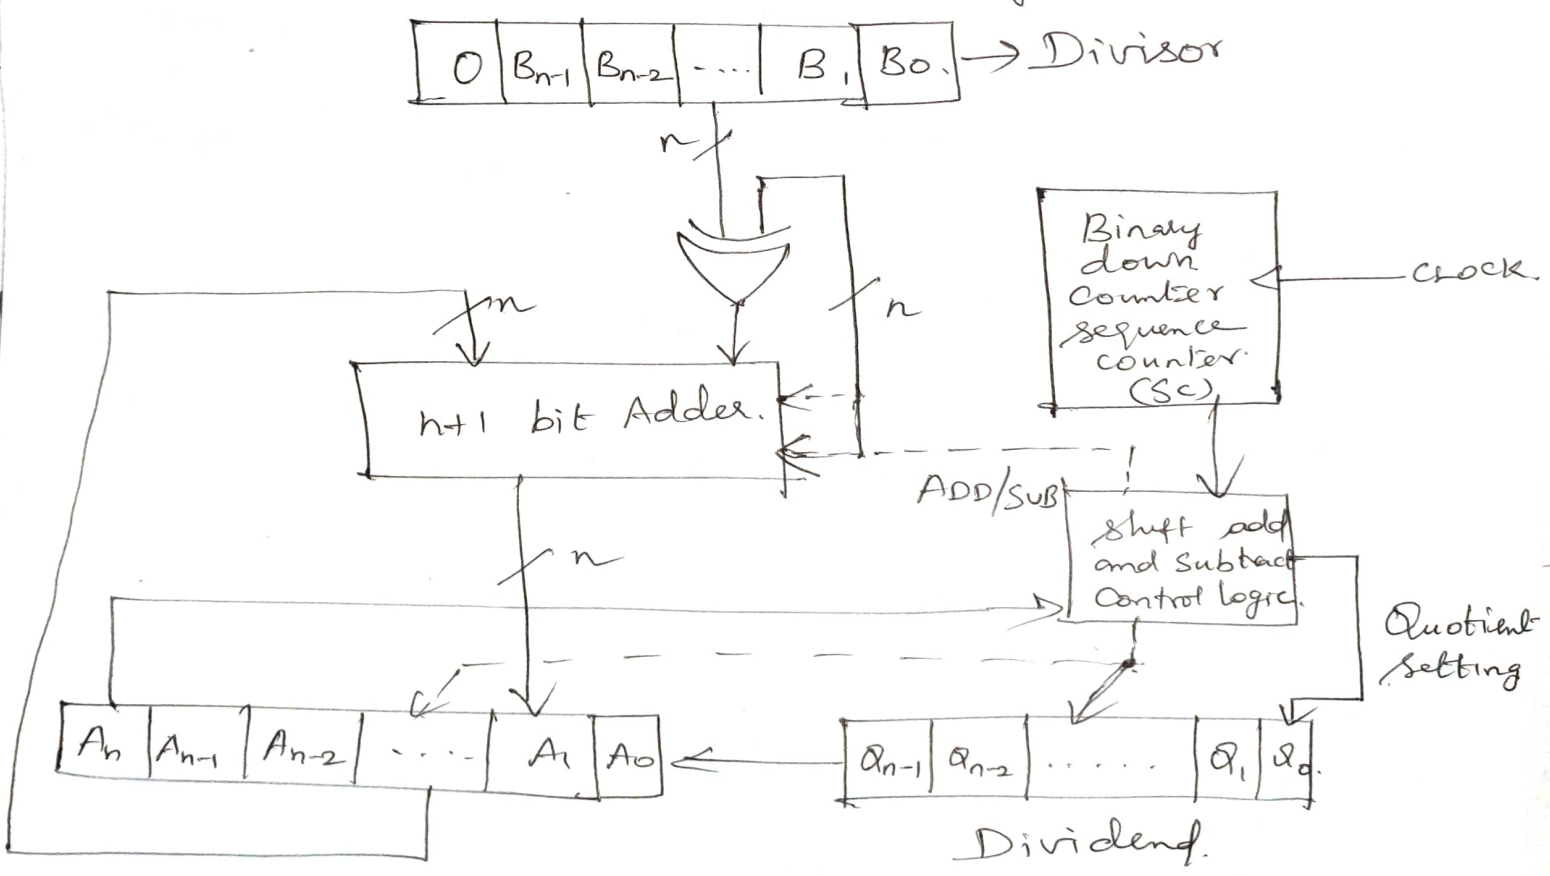 0 Bn-1 Bn-2 ..... B1 B0. → Divisor
n
Binary
down
counter
sequence
counter.
(SC)
CLOCK.
n
n
n+1 bit Adder.
ADD/SUB
shift add
and subtract
control logic.
n
Quotient
setting
An An-1 An-2 ..... A1 A0
Qn-1 Qn-2 ...... Q1 Q0.
Dividend.